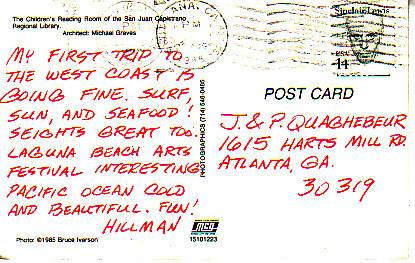 The Children's Reading Room of the San Juan Capistrano
Regional Library.
Architect: Michael Graves
MY FIRST TRIP TO
THE WEST COAST IS
GOING FINE. SURF,
SUN, AND SEAFOOD!
SEIGHTS GREAT TOO.
LAGUNA BEACH ARTS
FESTIVAL INTERESTING
PACIFIC OCEAN COLD
AND BEAUTIFUL. FUN!
HILLMAN
Photo: ©1985 Bruce Iverson
PHOTOGRAPHICS (714) 640-0495
ANA, CA
PM
Sinclair Lewis
USA
14
POST CARD
J. & P. QUAGHEBEUR
1615 HARTS MILL RD.
ATLANTA, GA.
30319
15101223